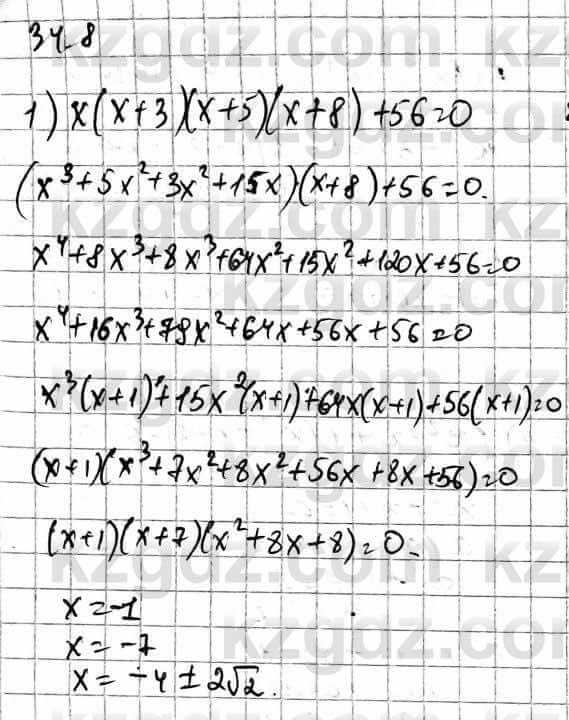 34.8
1) x(x+3)(x+5)(x+8)+56=0
(x³+5x²+3x²+15x)(x+8)+56=0.
x⁴+8x³+8x³+64x²+15x²+120x+56=0
x⁴+16x³+79x²+64x+56x+56=0
x³(x+1)+15x²(x+1)+64x(x+1)+56(x+1)=0
(x+1)(x³+7x²+8x²+56x+8x+56)=0
(x+1)(x+7)(x²+8x+8)=0.
x=-1
x=-7
x=-4±2√2.
kzgdz.com